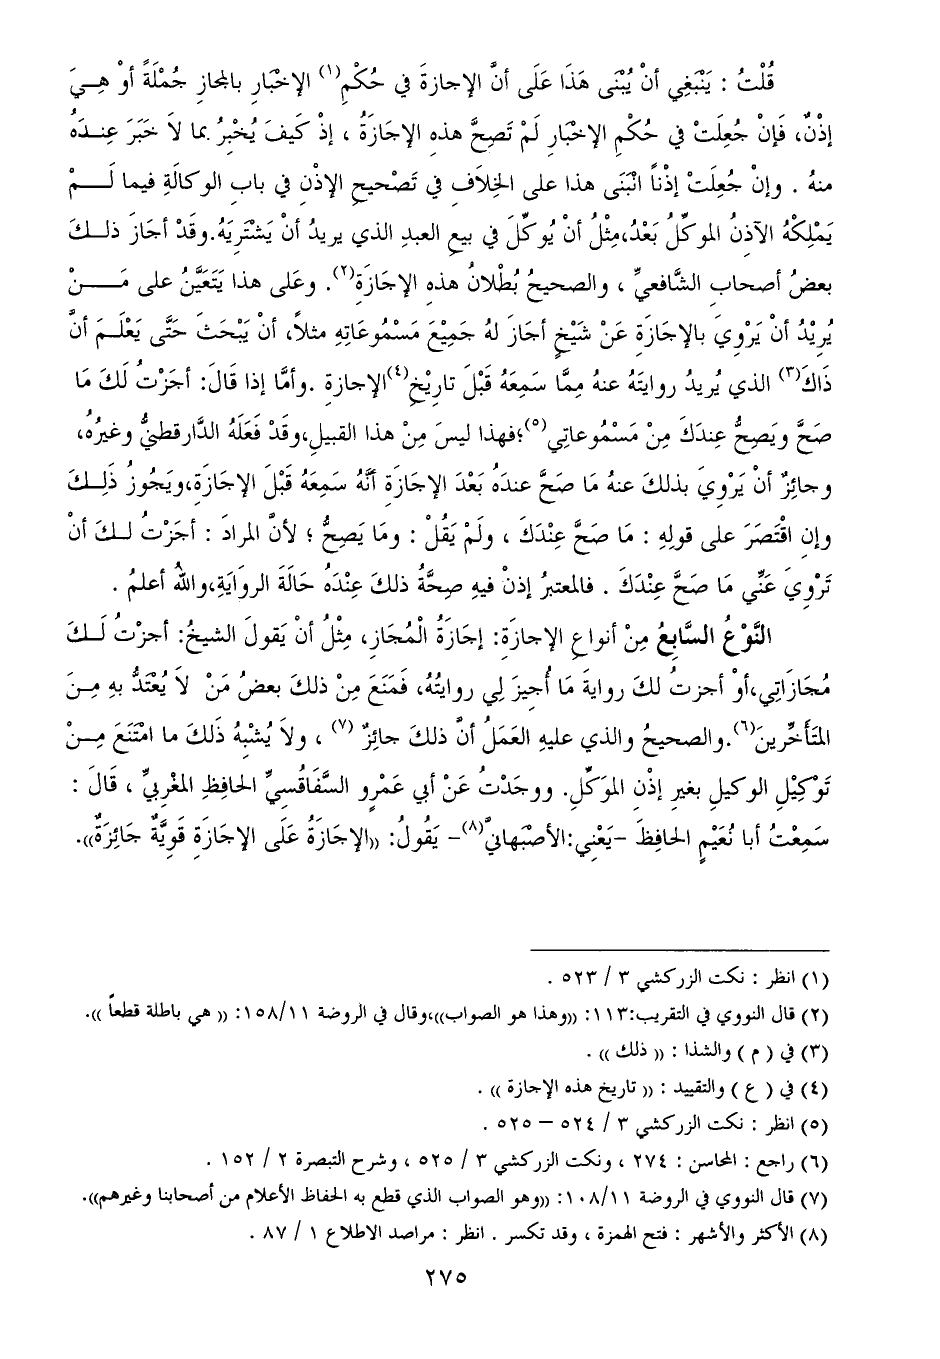 قُلْتُ : يَنْبَغِي أنْ يُبْنَى هَذَا عَلَى أنَّ الإجازةَ في حُكْمِ(١) الإخْبَارِ بالمجازِ جُمْلَةً أوْ هِيَ
إذْنٌ، فَإنْ جُعِلَتْ في حُكْمِ الإخْبَارِ لَمْ تَصِحَّ هذهِ الإجَازَةُ ، إذْ كَيفَ يُخْبِرُ بما لاَ خَبَرَ عِندَهُ
منهُ . وإنْ جُعِلَتْ إذْناً انْبَنَى هذا على الخِلاَفِ في تَصْحيحِ الإذْنِ في بابِ الوكالَةِ فيما لَمْ
يَمْلِكْهُ الآذِنُ الموَكِّلُ بَعْدُ،مِثْلُ أنْ يُوكِّلَ في بيعِ العبدِ الذي يريدُ أنْ يَشْتَريَهُ.وقَدْ أجَازَ ذلكَ
بعضُ أصحابِ الشَّافعيِّ ، والصحيحُ بُطْلانُ هذهِ الإجَازَةِ(٢). وعَلَى هذا يَتَعَيَّنُ على مَنْ
يُرِيْدُ أنْ يَرْوِيَ بالإجَازَةِ عَنْ شَيْخٍ أجَازَ لهُ جَمِيْعَ مَسْمُوعَاتِهِ مثلاً، أنْ يَبْحَثَ حَتَّى يَعْلَمَ أنَّ
ذَاكَ(٣) الذي يُريدُ روايتَهُ عنهُ مِمَّا سَمِعَهُ قَبْلَ تاريْخِ(٤)الإجازةِ .وأمَّا إذا قَالَ: أجَزْتُ لَكَ مَا
صَحَّ ويَصِحُّ عِندَكَ مِنْ مَسْمُوعَاتِي(٥)؛فهذا ليسَ مِنْ هذا القبيلِ،وقَدْ فَعَلَهُ الدَّارقطنيُّ وغيرُهُ،
وجائِزٌ أنْ يَرْوِيَ بذلكَ عنهُ مَا صَحَّ عندَهُ بَعْدَ الإجَازَةِ أنَّهُ سَمِعَهُ قَبْلَ الإجَازَةِ،ويَجُوزُ ذَلِكَ
وإنِ اقْتَصَرَ على قولِهِ : مَا صَحَّ عِنْدَكَ ، ولَمْ يَقُلْ : ومَا يَصِحُّ ؛ لأنَّ المرادَ : أجَزْتُ لكَ أنْ
تَرْوِيَ عَنِّي مَا صَحَّ عِنْدَكَ . فالمعتبرُ إذنْ فيهِ صِحَّةُ ذلكَ عِنْدَهُ حَالَةَ الروَايَةِ،واللهُ أعلمُ .
النَّوْعُ السَّابِعُ مِنْ أنواعِ الإجازَةِ: إجَازَةُ الْمُجَازِ، مِثْلُ أنْ يَقولَ الشيخُ: أجزْتُ لَكَ
مُجَازَاتِي،أوْ أجزتُ لكَ روايةَ مَا أُجِيزَ لِي روايتُهُ، فَمَنَعَ مِنْ ذلكَ بعضُ مَنْ لاَ يُعْتَدُّ بهِ مِنَ
المتَأَخِّرينَ(٦).والصحيحُ والذي عليهِ العَمَلُ أنَّ ذلكَ جائِزٌ (٧) ، ولاَ يُشْبِهُ ذَلكَ ما امْتَنَعَ مِنْ
تَوْكِيْلِ الوكيلِ بغيرِ إذْنِ الموَكِّلِ. ووجَدْتُ عَنْ أبي عَمْرٍو السَّفَاقُسيِّ الحافظِ المغْربيِّ ، قَالَ :
سَمِعْتُ أبا نُعَيْمٍ الحافِظَ -يَعْنِي:الأصْبَهانِيَّ(٨)- يَقُولُ: ((الإجَازَةُ عَلَى الإجَازَةِ قَوِيَّةٌ جَائِزَةٌ)).
(١) انظر : نكت الزركشي ٣ / ٥٢٣ .
(٢) قال النووي في التقريب:١١٣: ((وهذا هو الصواب))،وقال في الروضة ١٥٨/١١: (( هي باطلة قطعاً )).
(٣) في ( م ) والشذا : (( ذلك )) .
(٤) في ( ع ) والتقييد : (( تاريخ هذه الإجازة )) .
(٥) انظر : نكت الزركشي ٣ / ٥٢٤ – ٥٢٥ .
(٦) راجع : المحاسن : ٢٧٤ ، ونكت الزركشي ٣ / ٥٢٥ ، وشرح التبصرة ٢ / ١٥٢ .
(٧) قال النووي في الروضة ١٠٨/١١: ((وهو الصواب الذي قطع به الحفاظ الأعلام من أصحابنا وغيرهم)).
(٨) الأكثر والأشهر : فتح الهمزة ، وقد تكسر . انظر : مراصد الاطلاع ١ / ٨٧ .
٢٧٥